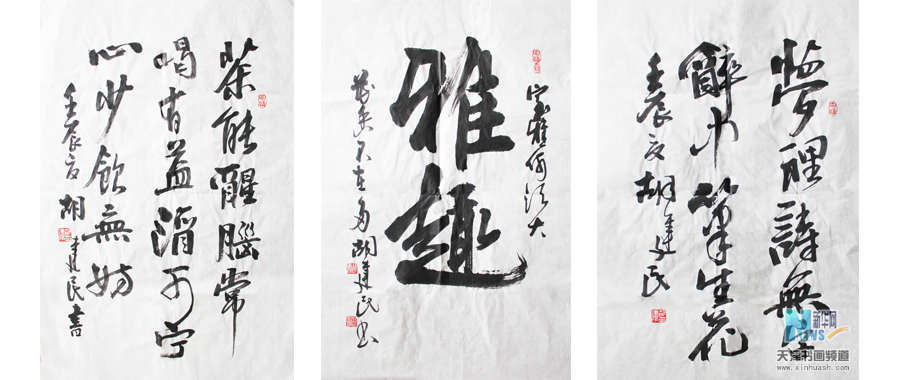 茶能醒腦常
喝有益酒可寧
心少飲無妨
壬辰夏胡建民書
室雅何須大
雅趣
花香不在多胡建民书
夢裡詩無
醉中筆生花
壬辰夏胡建民
新华网
NEWS
天津书画频道
www.xinhuash.com